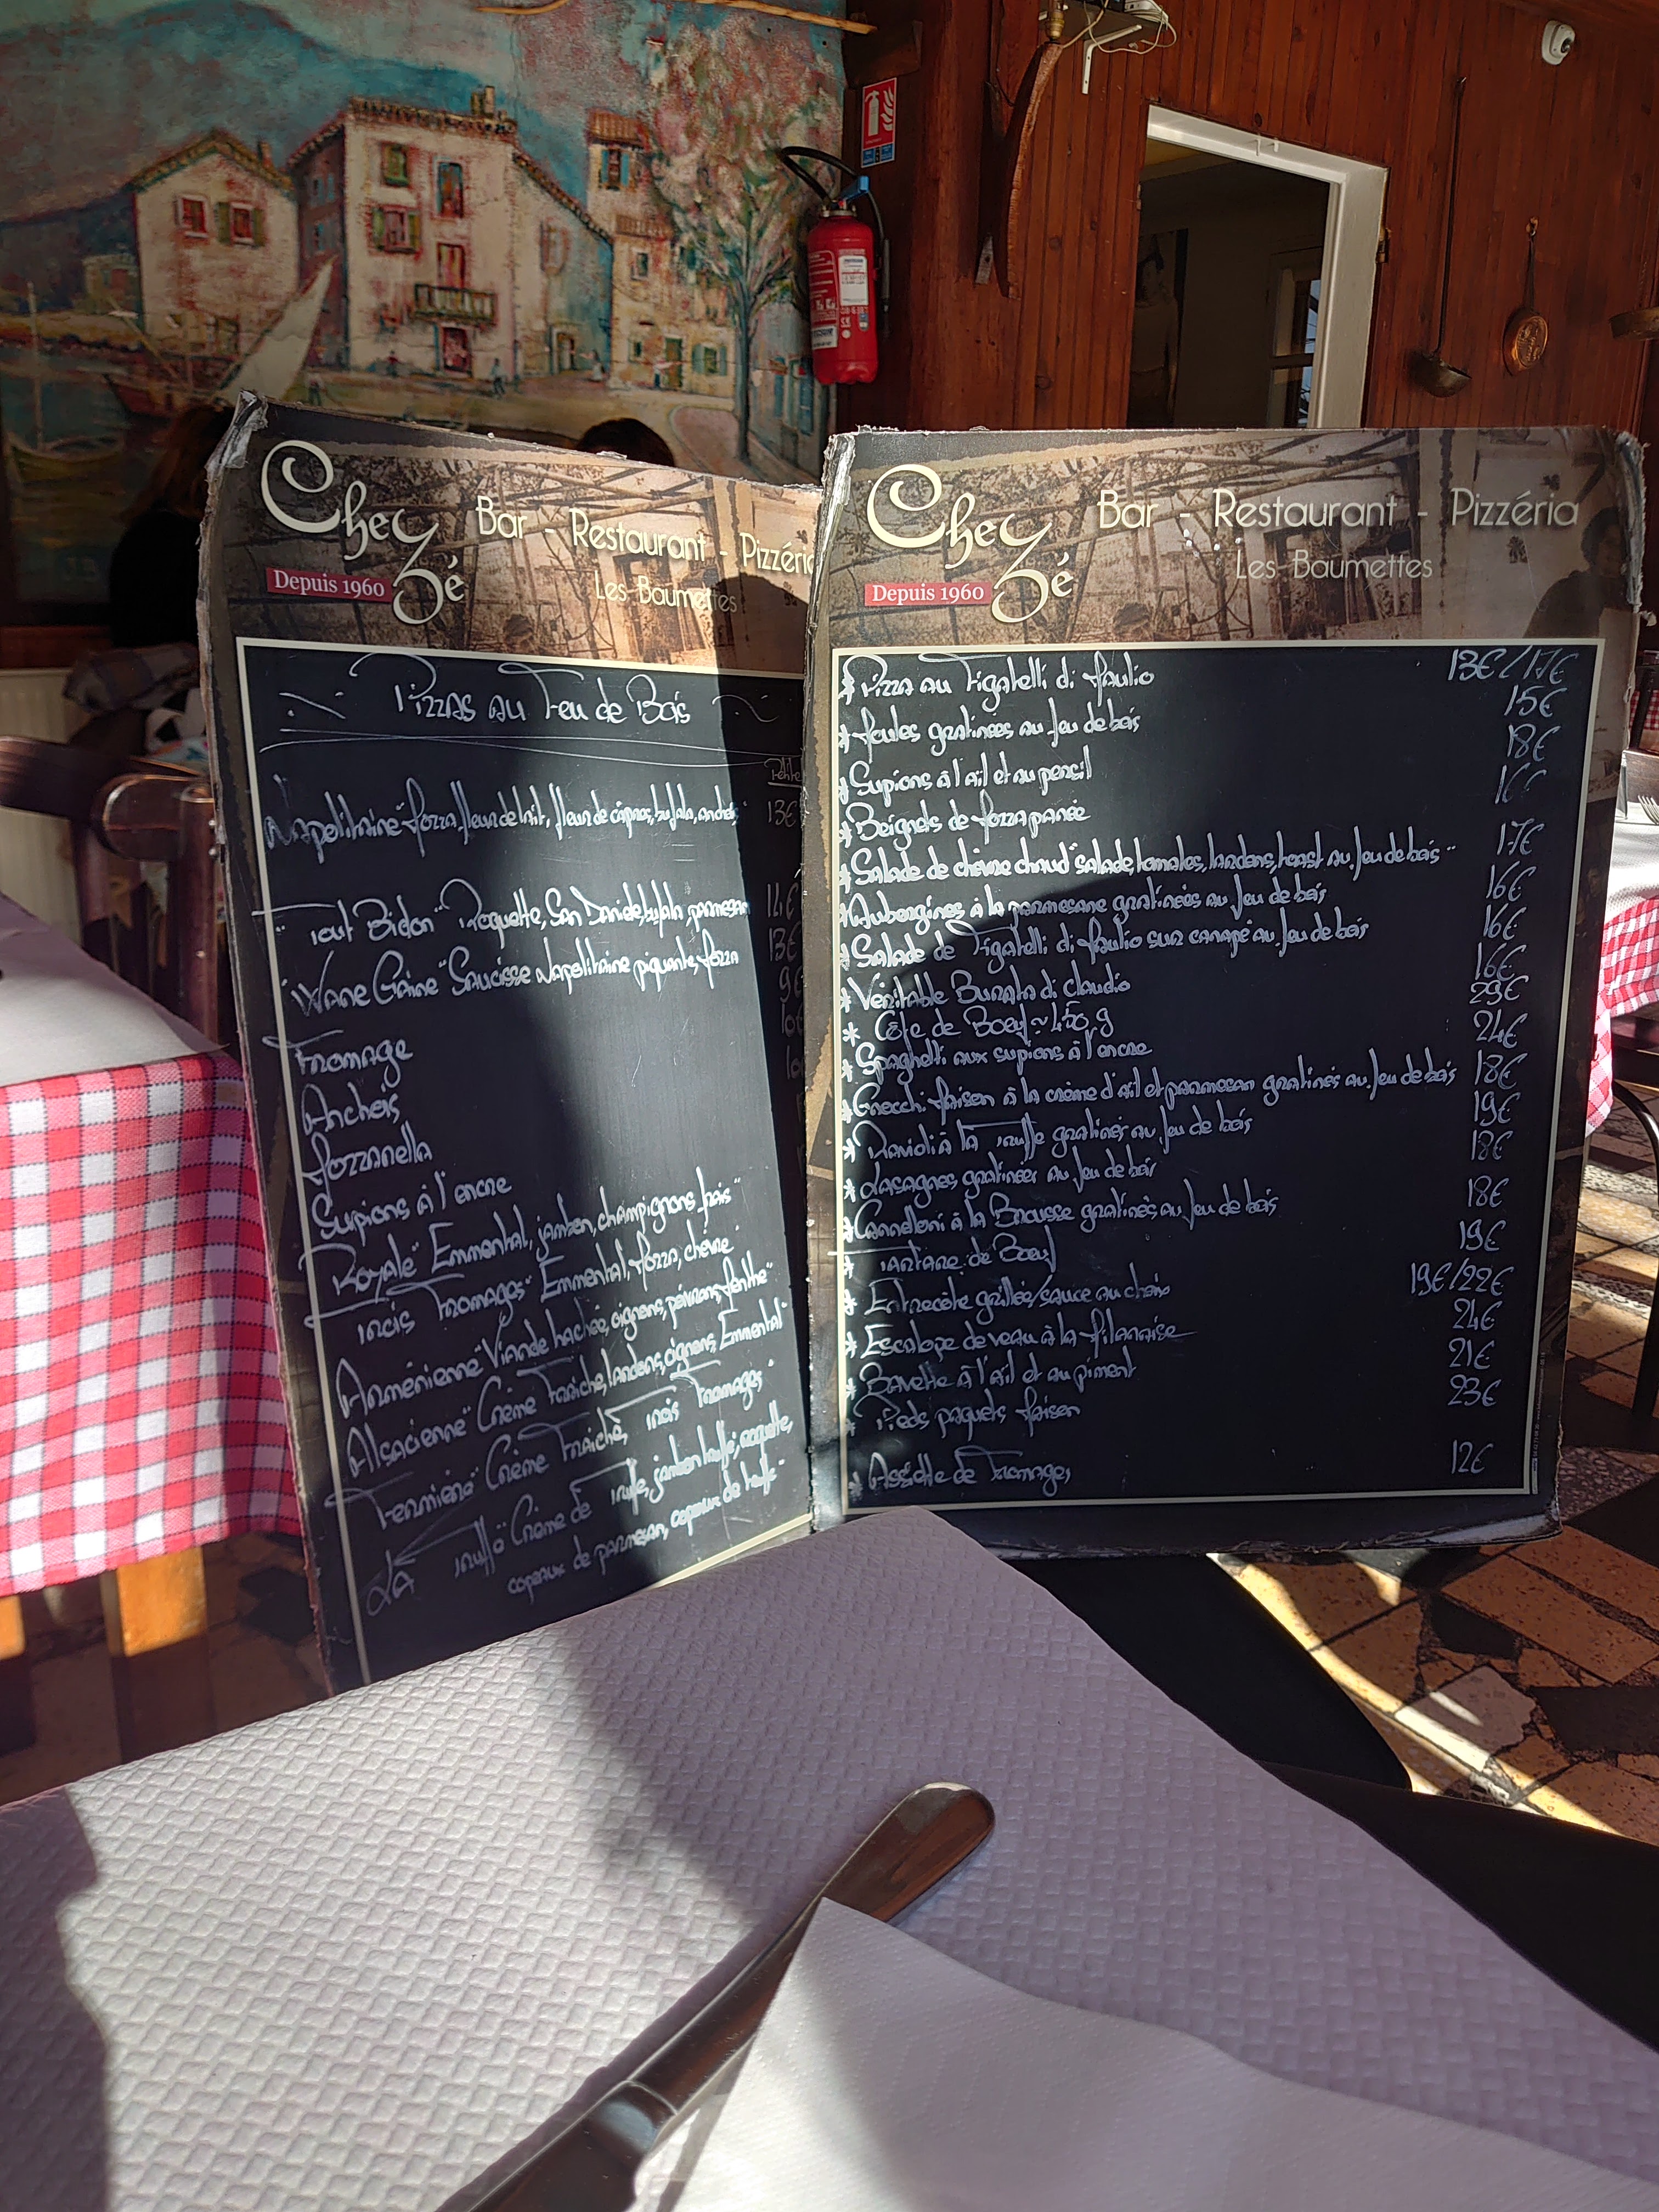 Chez Zé
Depuis 1960
Bar - Restaurant - Pizzéria
Les Baumettes
Pizzas au Feu de Bois
Petite
Napolitaine "Mozza, fleur de lait, fleur de câpres, bufala, anchois" 13€
"Tout Bidon" Roquette, San Daniele, bufala, parmesan 14€
Saucisse Napolitaine piquante, Mozza 13€
Fromage 9€
Anchois
Mozzarella
Supions à l'encre
"Royale" Emmental, jambon, champignons frais"
Trois Fromages" Emmental, Mozza, chèvre
Arménienne "Viande hachée, oignons, poivrons, Menthe"
Alsacienne" Crème Fraîche, lardons, oignons, Emmental"
Fermière" Crème Fraîche, Trois Fromages"
La Truffe" Crème de Truffe, jambon truffé, roquette,
copeaux de parmesan, copeaux de truffe"
Chez Zé
Depuis 1960
Bar - Restaurant - Pizzéria
Les Baumettes
* Pizza au Figatelli di Maulio 13€/17€
* Moules gratinées au feu de bois 15€
* Supions à l'ail et au persil 18€
* Beignets de Mozza panée 16€
* Salade de chèvre chaud "salade, tomates, lardons, toast au feu de bois" 17€
* Aubergines à la parmesane gratinées au feu de bois 16€
* Salade de Figatelli di Maulio sur canapé au feu de bois 16€
* Véritable Burrata di Claudio 16€
* Côte de Boeuf ~ 450 g 29€
* Spaghetti aux supions à l'encre 24€
* Gnocchi Maison à la crème d'ail et parmesan gratinés au feu de bois 18€
* Ravioli à la Truffe gratinés au feu de bois 19€
* Lasagnes gratinées au feu de bois 18€
* Cannelloni à la Brousse gratinés au feu de bois 18€
* Tartare de Boeuf 19€
* Entrecôte grillée/sauce au choix 19€/22€
* Escalope de veau à la Milanaise 24€
* Bavette à l'ail et au piment 21€
* Pieds paquets Maison 23€
* Assiette de Fromages 12€